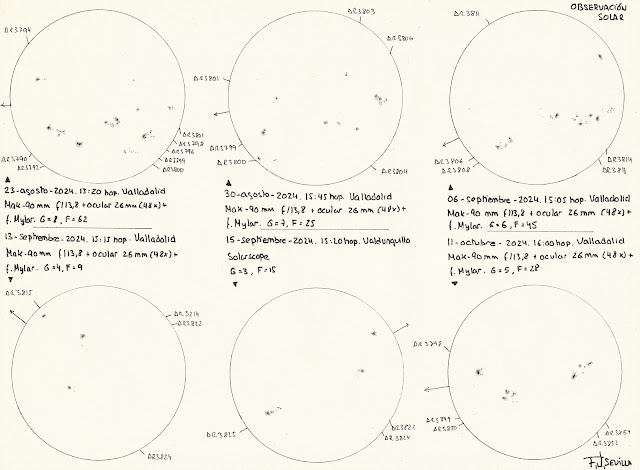 OBSERVACIÓN
SOLAR
AR3794
AR3790
AR3792
AR3801
AR3798
AR3796
AR3799
AR3800
AR3803
AR3806
AR3801
AR3799
AR3800
AR3804
AR3811
AR3806
AR3808
AR3814
23-agosto-2024. 13:20 hop. Valladolid
Mak-90 mm f/13,8 + ocular 26 mm (48x) +
f. Mylar. G=8, F=62
30-agosto-2024. 15:45 hop. Valladolid
Mak-90 mm f/13,8 + ocular 26 mm (48x) +
f. Mylar. G=7, F=25
06-septiembre-2024. 15:05 hop. Valladolid
Mak-90 mm f/13,8 + ocular 26 mm (48x) +
f. Mylar. G=6, F=45
13-septiembre-2024. 15:15 hop. Valladolid
Mak-90 mm f/13,8 + ocular 26 mm (48x) +
f. Mylar. G=4, F=9
15-septiembre-2024. 13:20 hop. Valdunquillo
Solarscope
G=3, F=15
11-octubre-2024. 16:00 hop. Valladolid
Mak-90 mm f/13,8 + ocular 26 mm (48x) +
f. Mylar. G=5, F=28
AR3815
AR3214
AR3822
AR3824
AR3825
AR3822
AR3824
AR3848
AR3849
AR3850
AR3854
AR3852
F.J SEVILLA